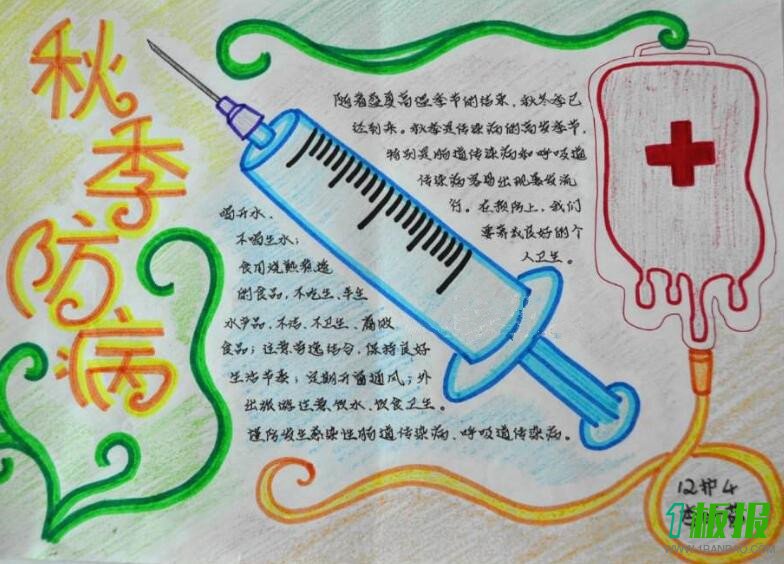 秋季防病
随着夏季高温季节的结束，秋冬季已
达到来。秋季是传染病的高发季节，
特别是肠道传染病和呼吸道
传染病容易出现暴发流
行。在预防上，我们
要养成良好的个
人卫生。
喝开水、
不喝生水；
食用烧熟煮透
的食品，不吃生、半生
水产品，不洁、不卫生、腐败
食品；注意劳逸结合，保持良好
生活节奏；定期开窗通风；外
出旅游注意饮水、饮食卫生。
谨防发生感染性肠道传染病、呼吸道传染病。
12护4
1板报
WWW.1BANBAO.COM